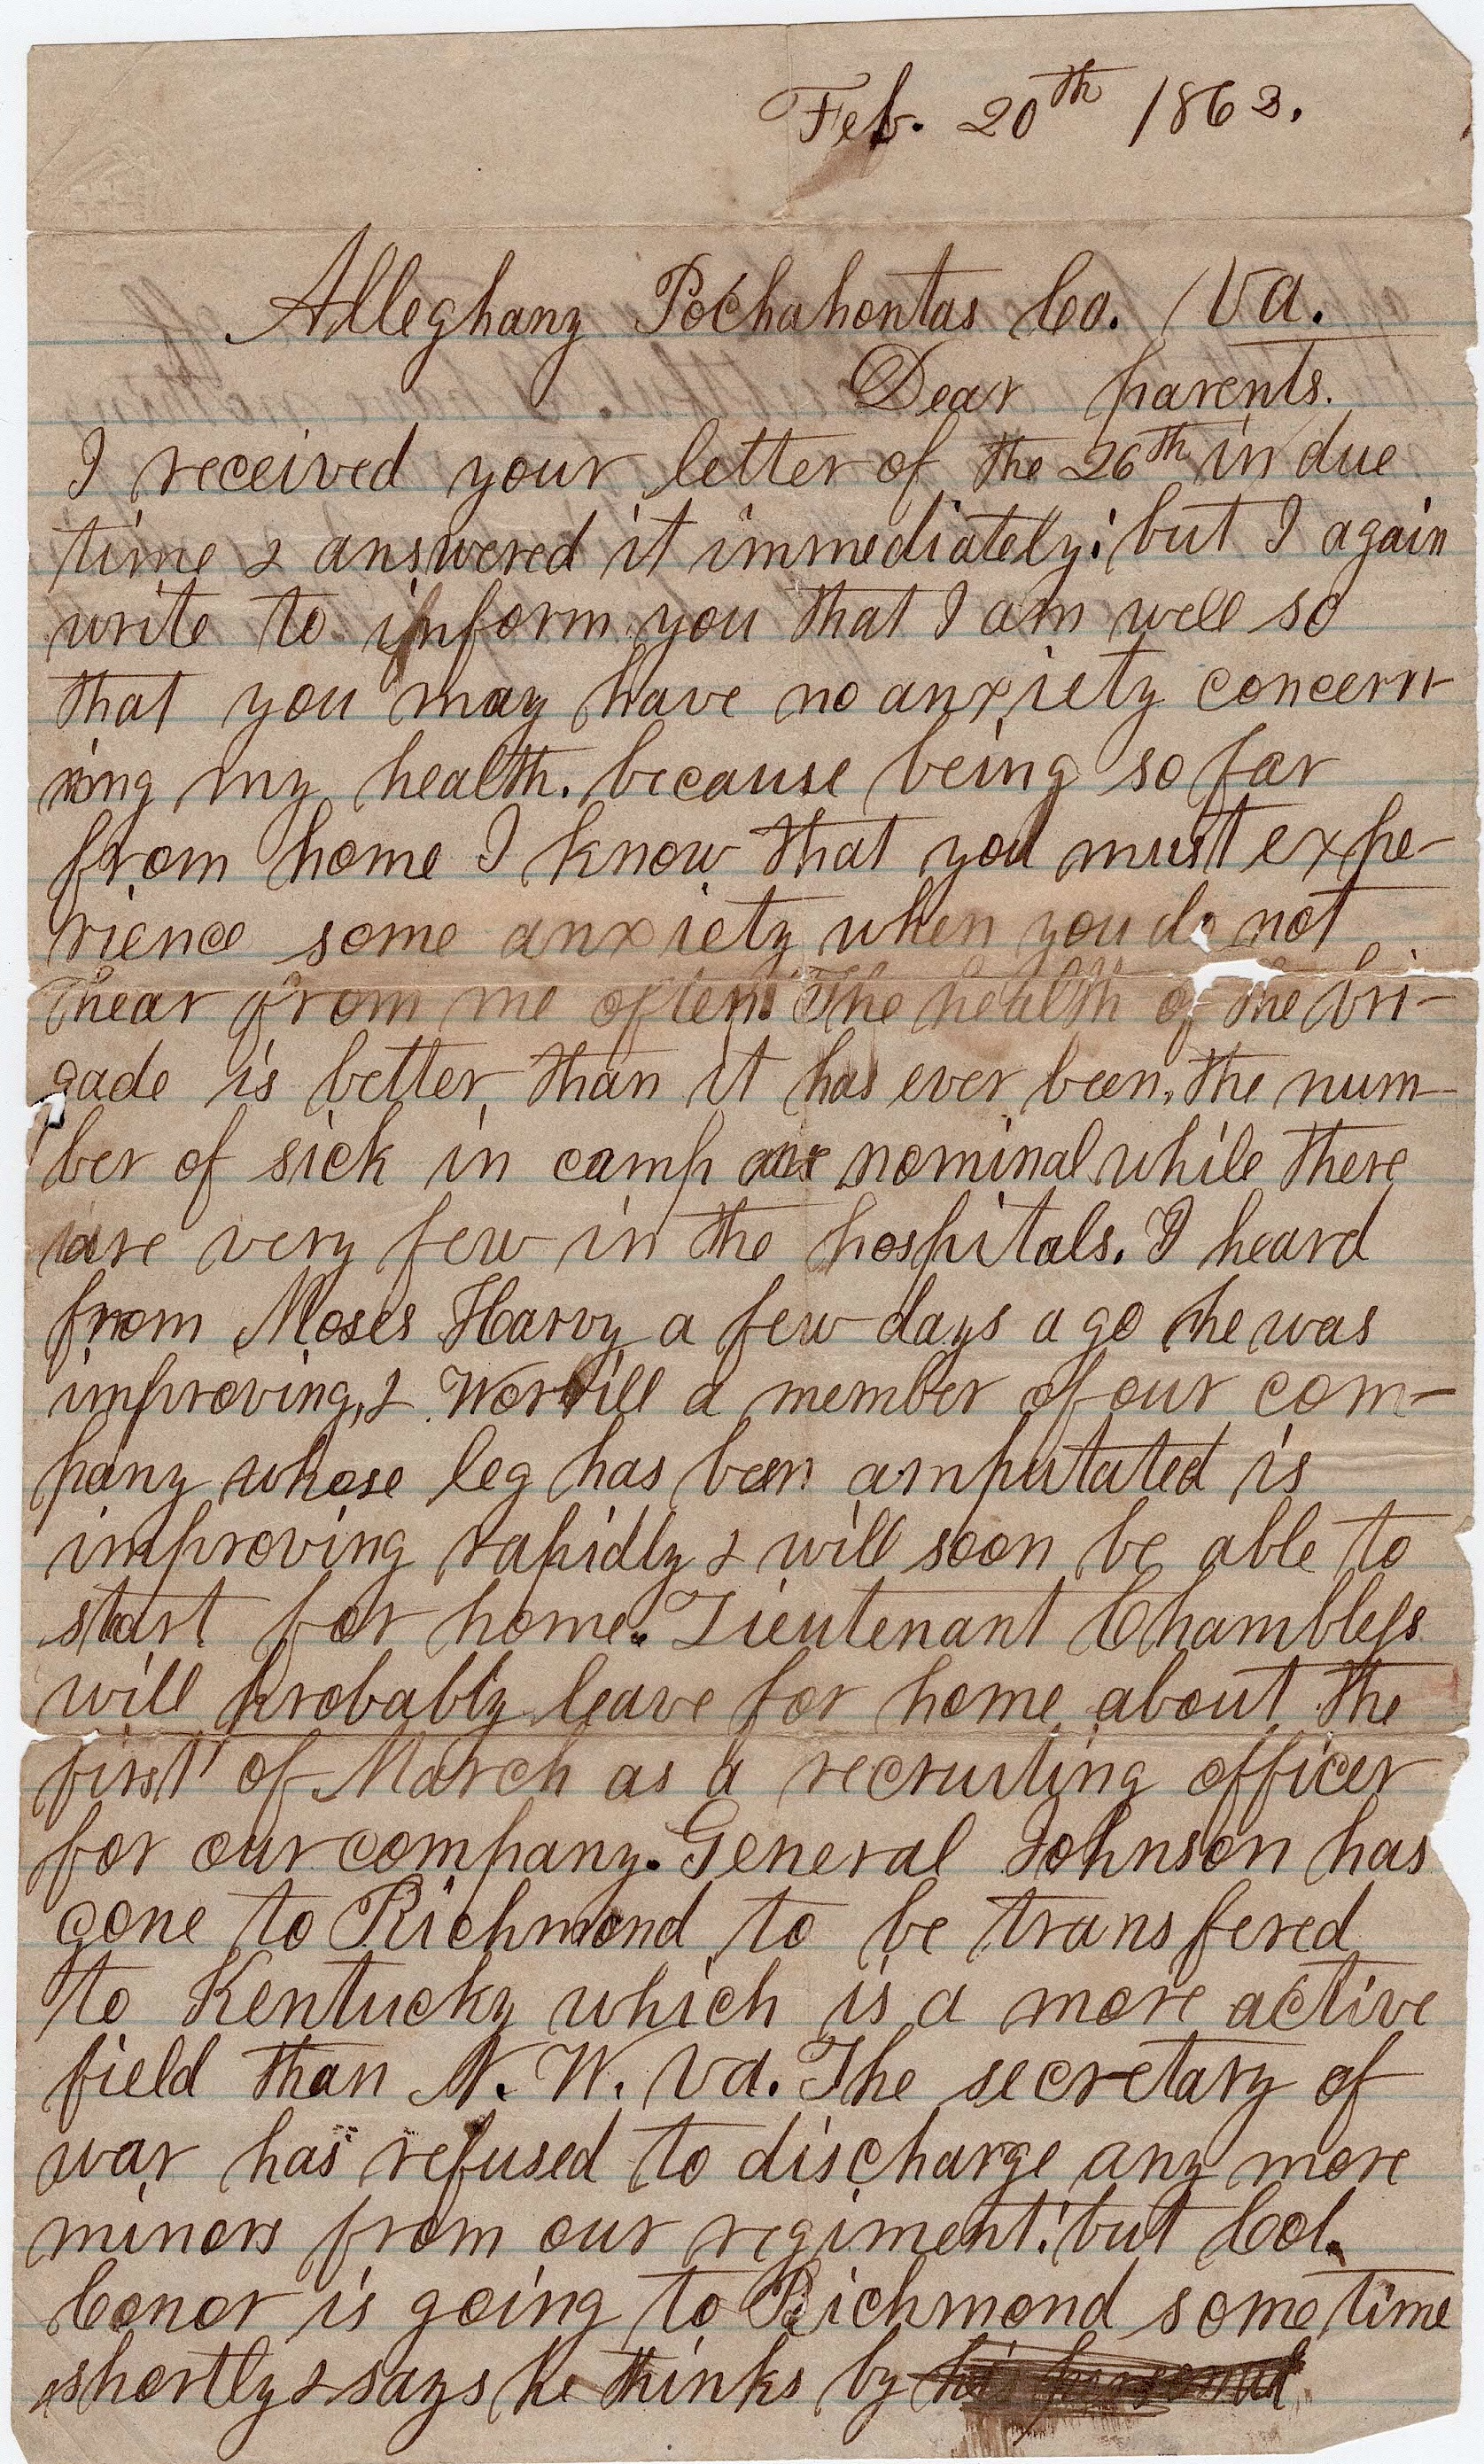 Feb. 20th 1862.
Alleghany Pochahontas Co. Va.
Dear parents.
I received your letter of the 26th in due
time & answered it immediately: but I again
write to inform you that I am well so
that you may have no anxiety concern-
ing my health. because being so far
from home I know that you must expe-
rience some anxiety when you do not
hear from me often. The health of the bri-
gade is better than it has ever been, the num-
ber of sick in camp are nominal while there
are very few in the hospitals. I heard
from Moses Harvy a few days ago he was
improving, & Worrill a member of our com-
pany whose leg has been amputated is
improving rapidly & will soon be able to
start for home. Lieutenant Chambless
will probably leave for home about the
first of March as a recruiting officer
for our company. General Johnson has
gone to Richmond to be transfered
to Kentucky which is a more active
field than N. W. Va. The secretary of
war has refused to discharge any more
minors from our regiment: but Col.
Conor is going to Richmond some time
shortly & says he thinks by his personal